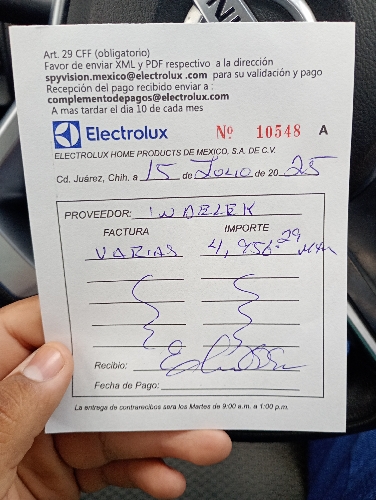 Art. 29 CFF (obligatorio)
Favor de enviar XML y PDF respectivo a la dirección
spyvision.mexico@electrolux .com para su validación y pago
Recepción del pago recibido enviar a :
complementodepagos@electrolux.com
A mas tardar el dia 10 de cada mes
Electrolux Nº 10548 A
ELECTROLUX HOME PRODUCTS DE MEXICO, S.A. DE C.V.
Cd. Juárez, Chih. a 15 de Julio de 20 25
PROVEEDOR: INDELEK
FACTURA IMPORTE
VARIAS 4,956.29 MXN
Recibio:
Fecha de Pago:
La entrega de contrarecibos sera los Martes de 9:00 a.m. a 1:00 p.m.